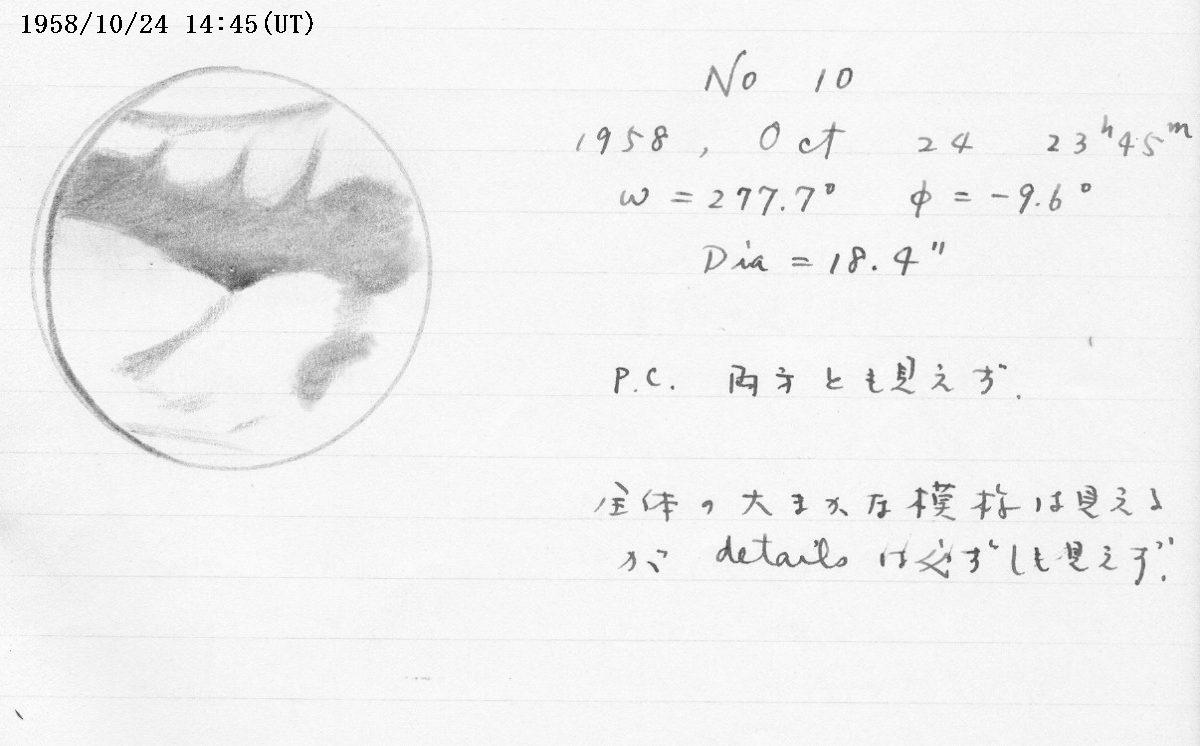 1958/10/24 14:45(UT)
No 10
1958, Oct 24 23ʰ45ᵐ
ω = 277.7° φ = -9.6°
Dia = 18.4"
P.C.両方とも見えず.
全体の大まかな模様は見える
が details は必ずしも見えず.